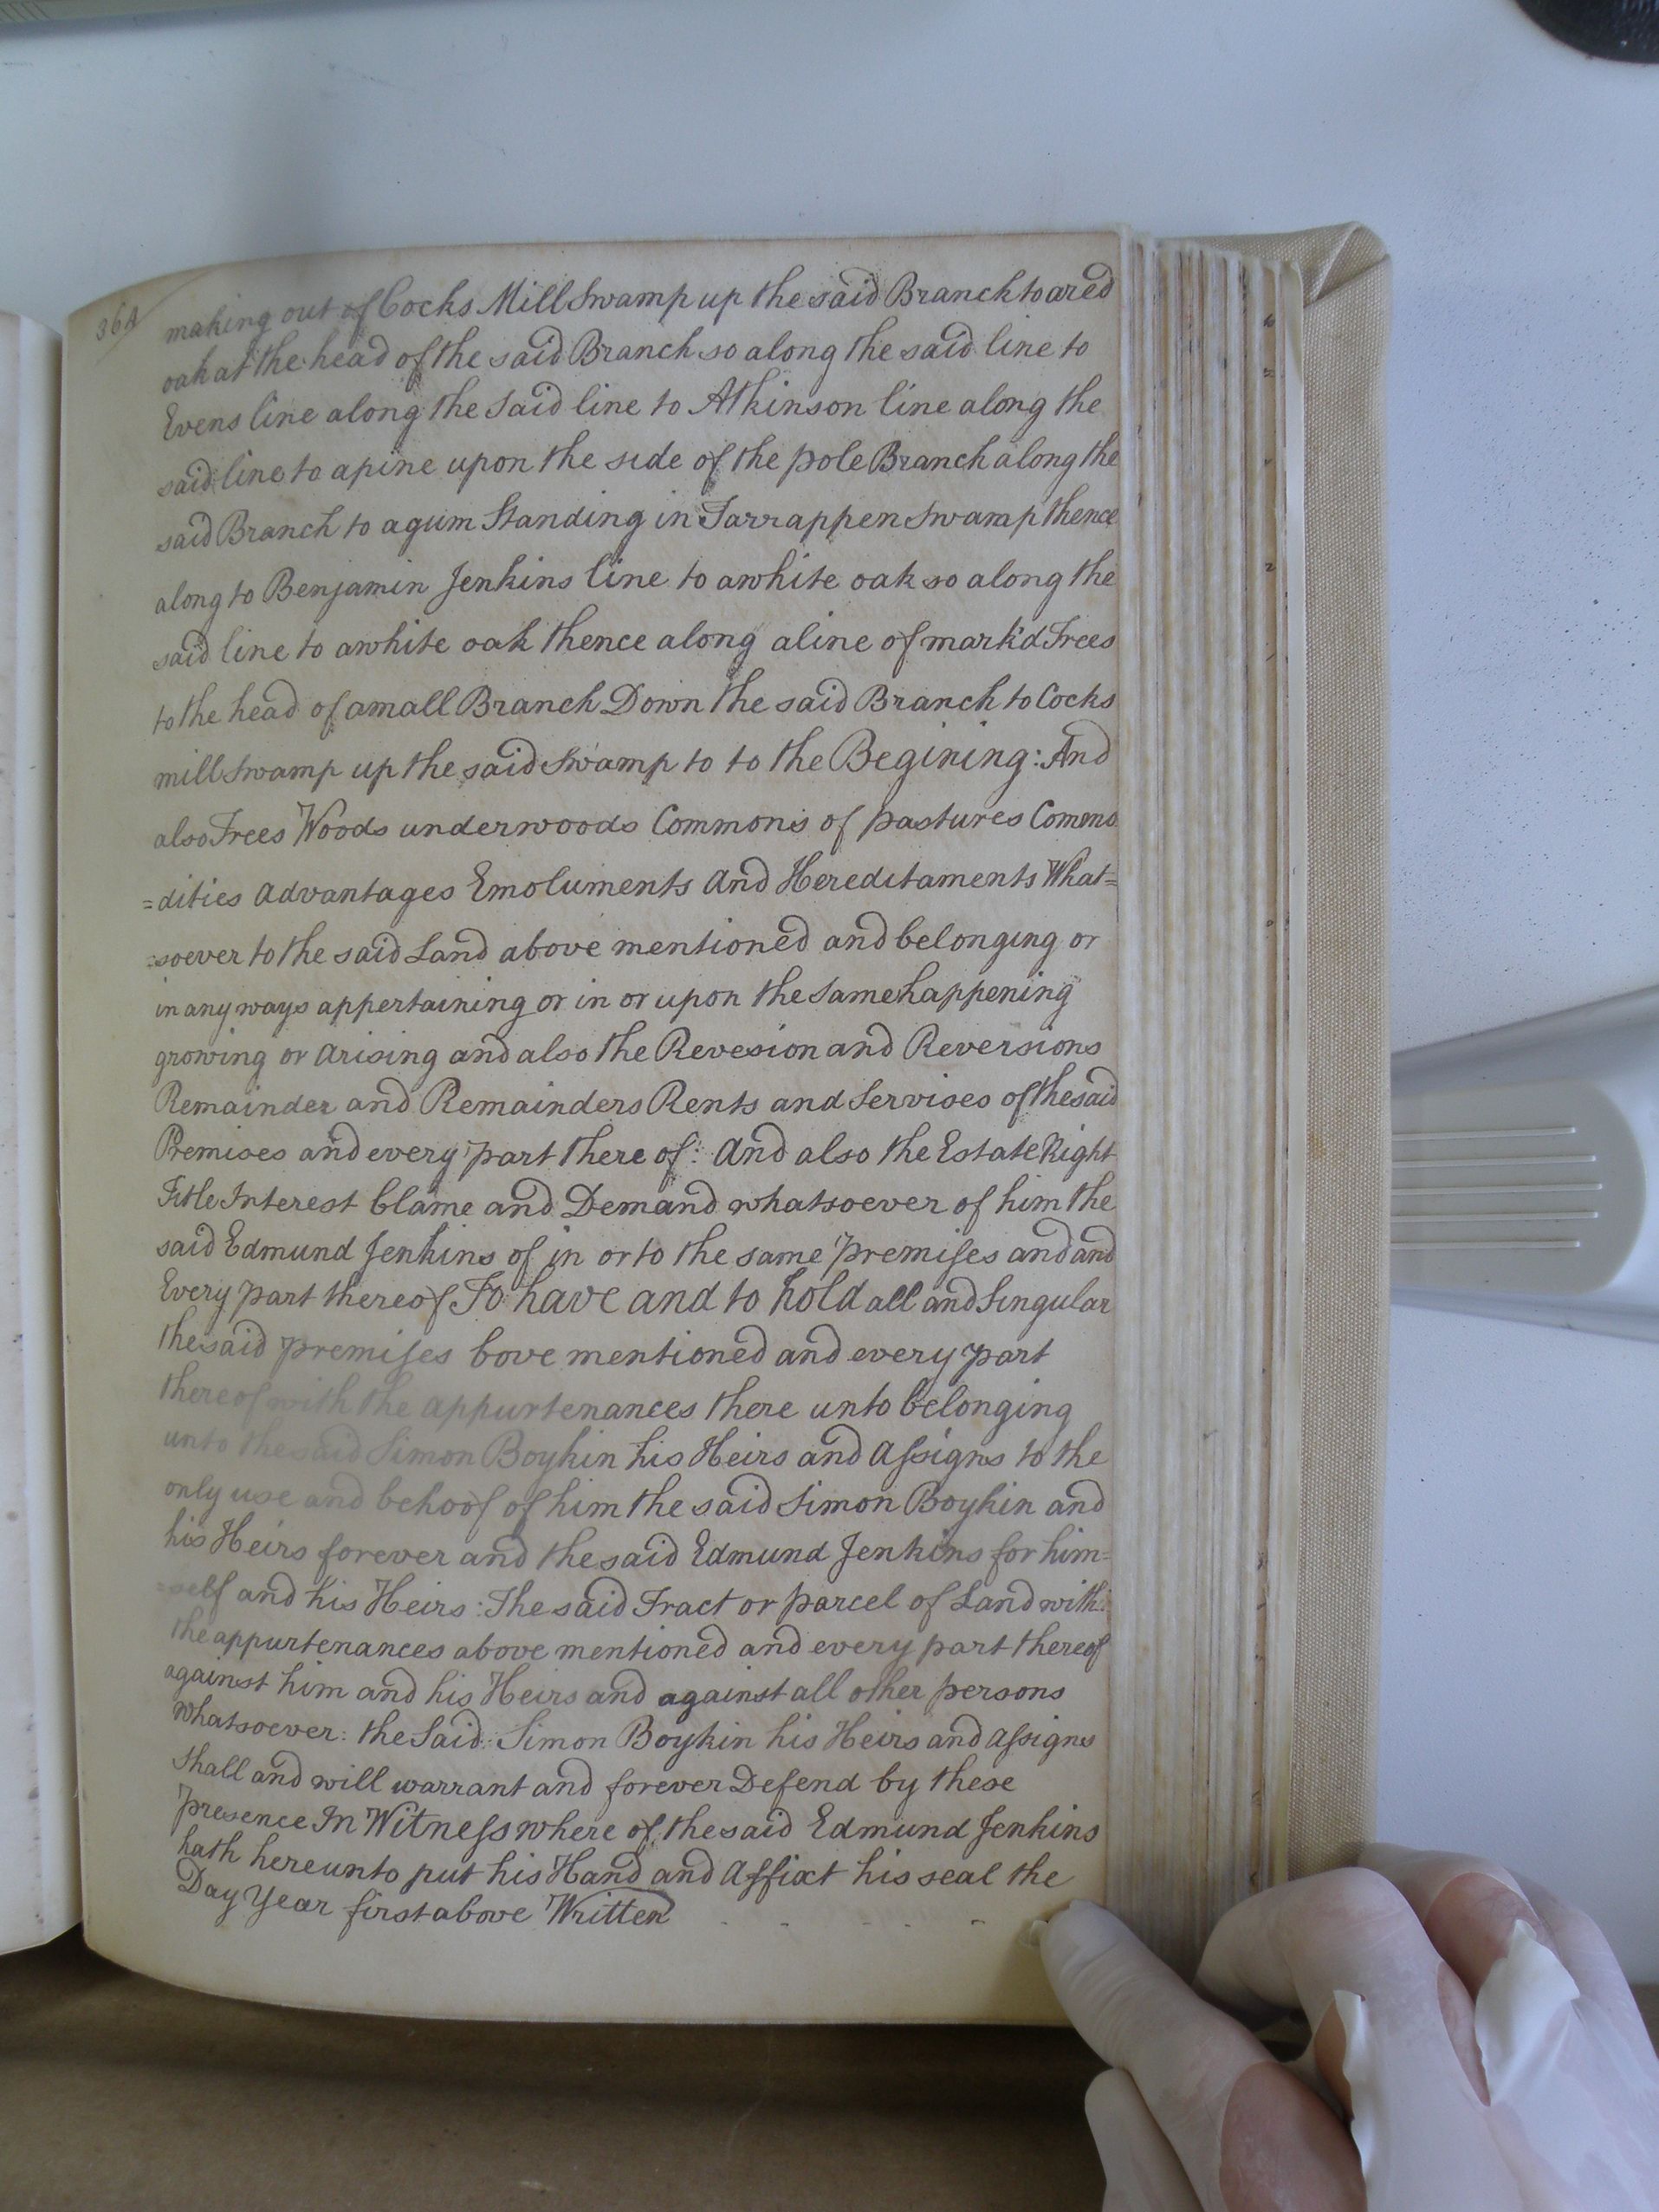 364
making out of Cocks Mill Swamp up the said Branch to a red
oak at the head of the said Branch so along the said line to
Evens line along the said line to Atkinson line along the
said line to a pine upon the side of the pole Branch along the
said Branch to a gum Standing in Tarrappen Swamp thence
along to Benjamin Jenkins line to a white oak so along the
said line to a white oak thence along a line of mark'd Trees
to the head of a mall Branch Down the said Branch to Cocks
mill Swamp up the said Swamp to to the Begining: And
also Trees Woods underwoods Commons of pastures Comemo
=dities Advantages Emoluments And Hereditaments What=
=soever to the said Land above mentioned and belonging or
in any ways appertaining or in or upon the same happening
growing or Arising and also the Revesion and Reversions
Remainder and Remainders Rents and Servises of the said
Premises and every part there of: And also the Estate Right
Title Interest Clame and Demand whatsoever of him the
said Edmund Jenkins of in or to the same premises and and
Every part thereof To have and to hold all and Singular
the said premises bove mentioned and every part
thereof with the appurtenances there unto belonging
unto the said Simon Boykin his Heirs and Assigns to the
only use and behoof of him the said Simon Boykin and
his Heirs forever and the said Edmund Jenkins for him=
=self and his Heirs: The said Tract or parcel of Land with
the appurtenances above mentioned and every part thereof
against him and his Heirs and against all other persons
whatsoever: the Said: Simon Boykin his Heirs and Assigns
Shall and will warrant and forever Defend by these
presence In Witness where of the said Edmund Jenkins
hath hereunto put his Hand and Affixt his seal the
Day Year first above Written